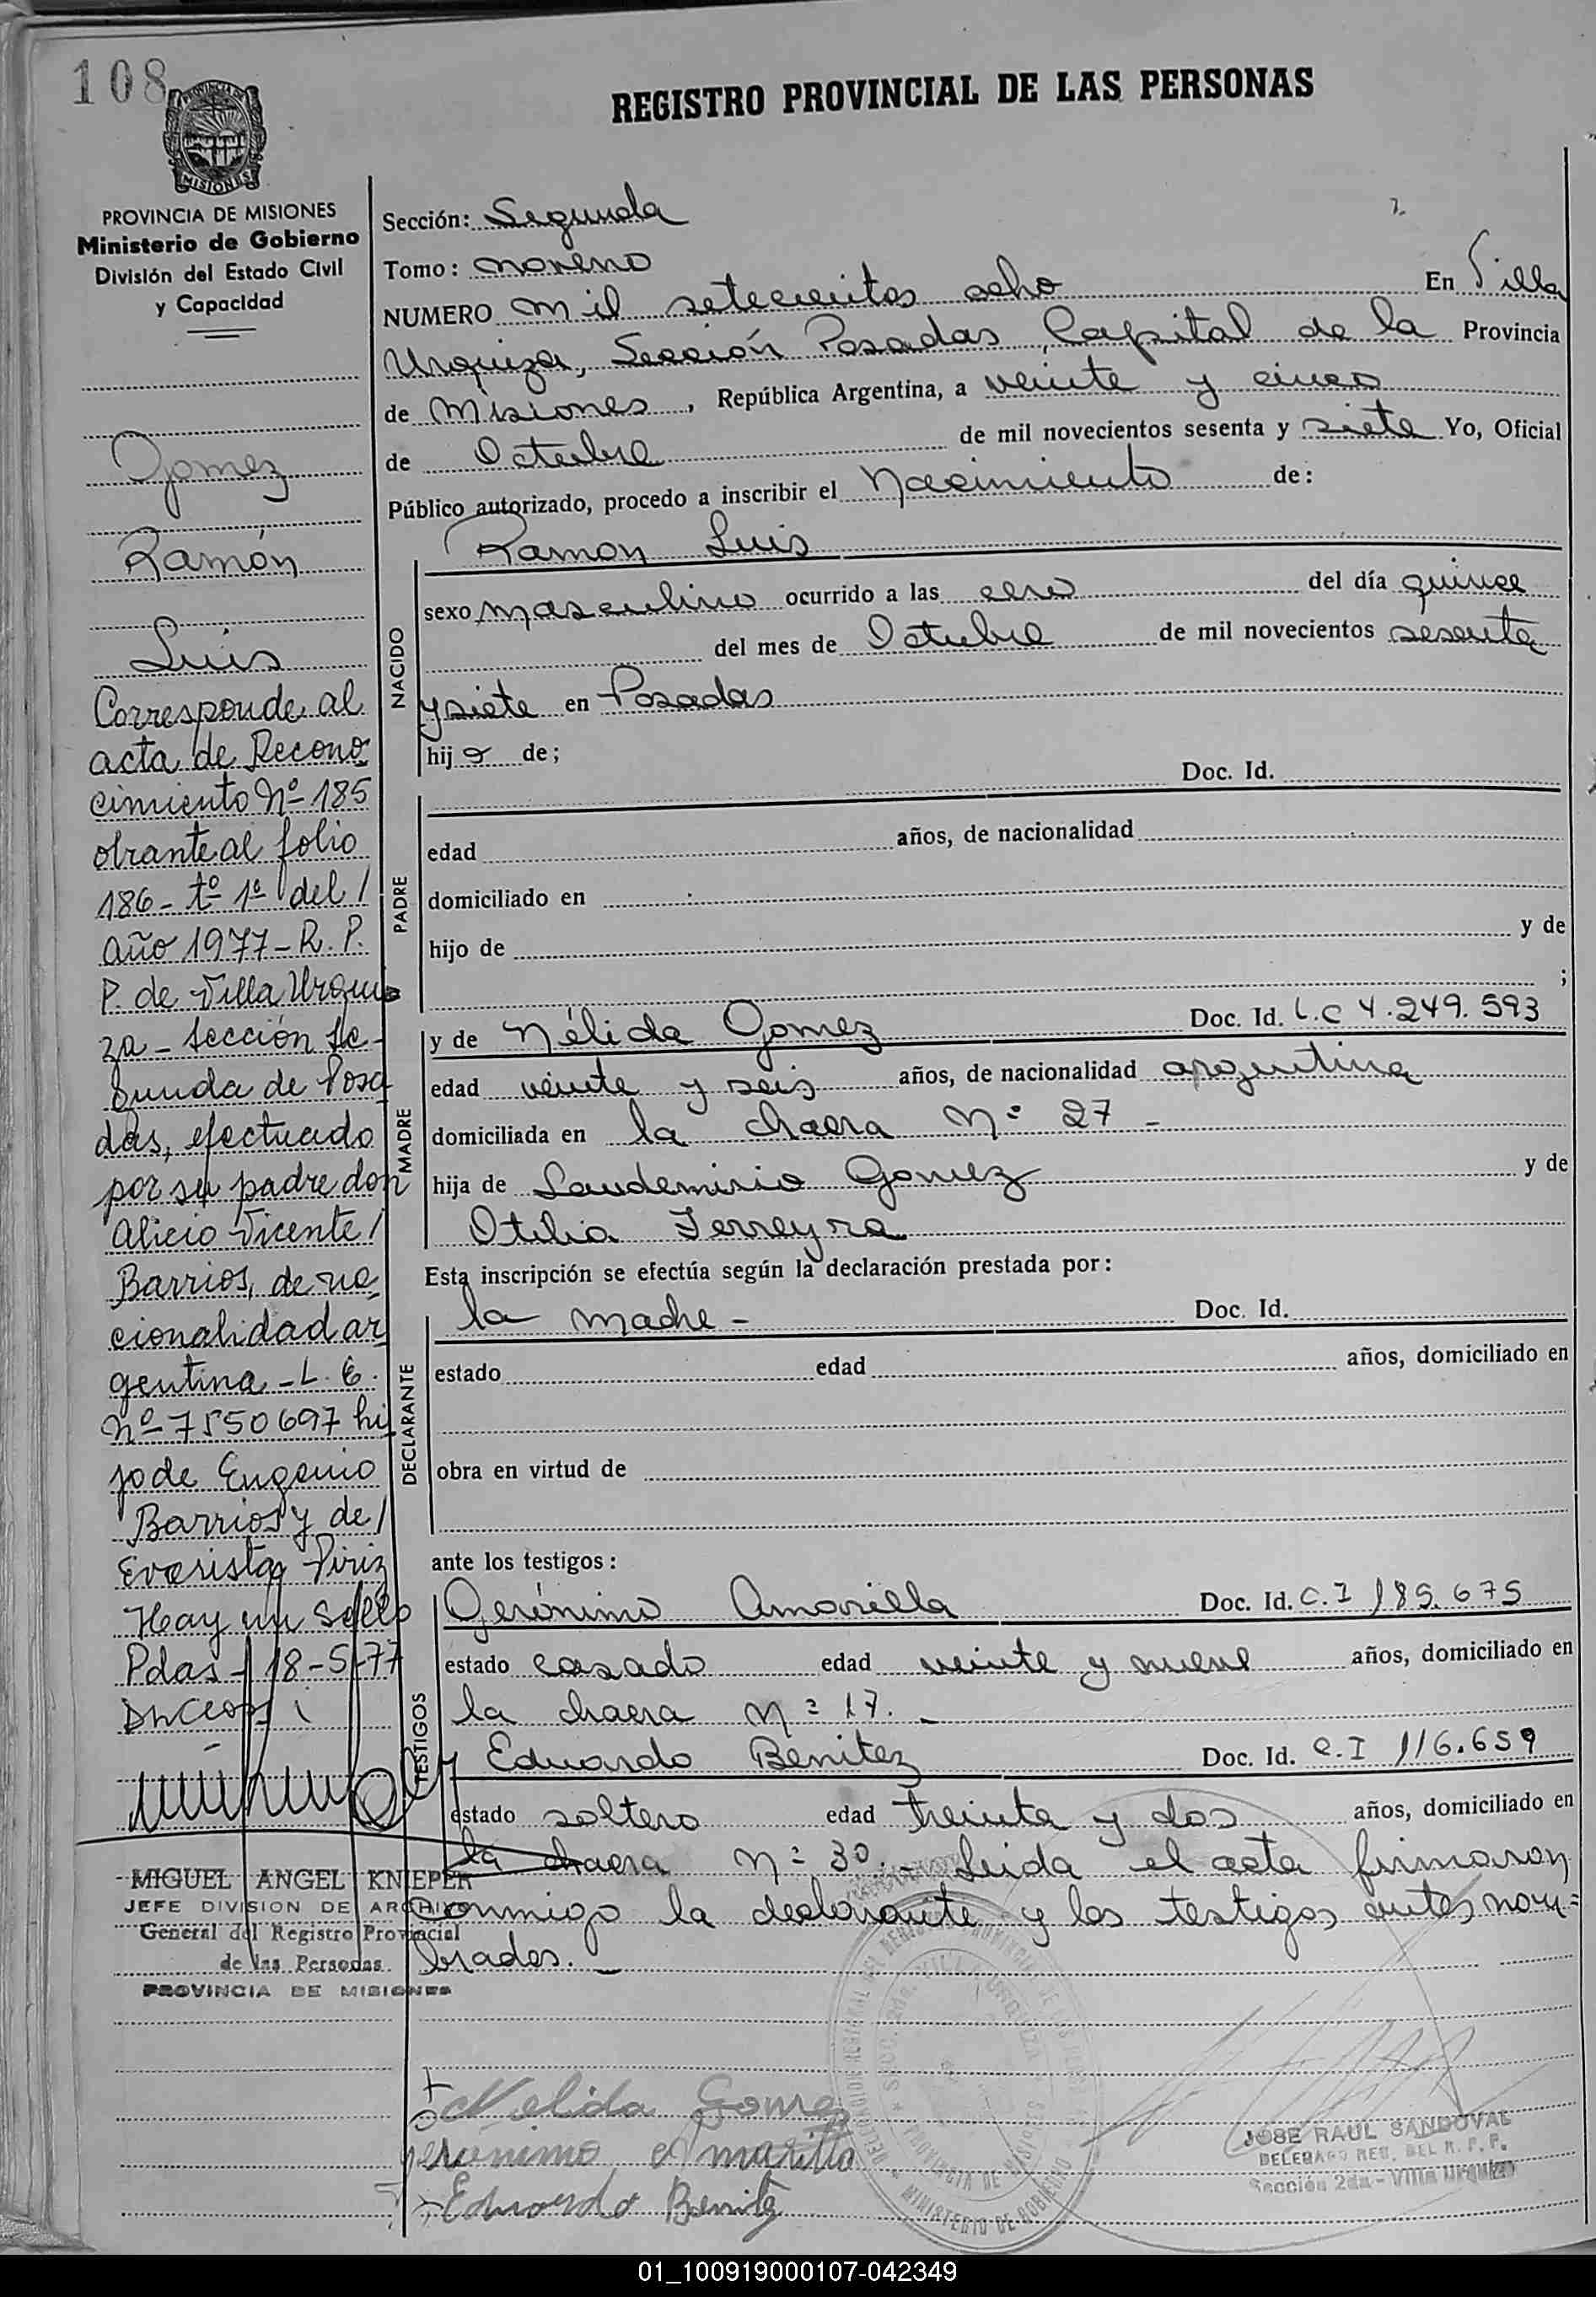 108
REGISTRO PROVINCIAL DE LAS PERSONAS
MISIONES
PROVINCIA DE MISIONES
Ministerio de Gobierno
División del Estado Civil
y Capacidad
Gomez
Ramón
Luis
Corresponde al
acta de Recono
cimiento Nº 185
obrante al folio
186 - tº 1º del /
año 1977 - R. P.
P. de Villa Urqui
za - Sección Se-
gunda de Posa
das, efectuado
por su padre don
Alicio Vicente /
Barrios, de na
cionalidad ar
gentina - L. E.
Nº 7550697 hi
jo de Eugenio
Barrios y de /
Evarista Piriz
Hay un sello
Pdas - 18-5-77
MIGUEL ANGEL KNIEPER
JEFE DIVISION DE ARCHIVO
General del Registro Provincial
de las Personas
PROVINCIA DE MISIONES
Sección: Segunda
Tomo: noveno
NUMERO mil setecientos ocho En Villa
Urquiza, Sección Posadas, Capital de la Provincia
de Misiones, República Argentina, a veinte y cinco
de Octubre de mil novecientos sesenta y siete Yo, Oficial
Público autorizado, procedo a inscribir el Nacimiento de:
NACIDO
Ramon Luis
sexo masculino ocurrido a las cero del día quince
del mes de Octubre de mil novecientos sesenta
y siete en Posadas
hijo de;
PADRE
Doc. Id.
edad años, de nacionalidad
domiciliado en
hijo de y de
;
MADRE
y de Nélida Gomez Doc. Id. L.C 4.249.593
edad veinte y seis años, de nacionalidad argentina
domiciliada en la chacra Nº 27 -
hija de Laudemirio Gomez y de
Otilia Ferreyra
Esta inscripción se efectúa según la declaración prestada por:
DECLARANTE
la madre - Doc. Id.
estado edad años, domiciliado en
obra en virtud de
ante los testigos:
TESTIGOS
Gerónimo Amarilla Doc. Id. C.I 185.675
estado casado edad veinte y nueve años, domiciliado en
la chacra Nº 17. -
y Eduardo Benitez Doc. Id. C.I 116.659
estado soltero edad treinta y dos años, domiciliado en
la chacra Nº 30.- Leida el acta firmaron
conmigo la declarante y los testigos antes nom=
brados. -
Nelida Gomez
Jeronimo Amarilla
Eduardo Benitez
MINISTERIO DE GOBIERNO
JOSE RAUL SANDOVAL
DELEGADO REG. DEL R. P. P.
Sección 2da - Villa Urquiza
01_100919000107-042349